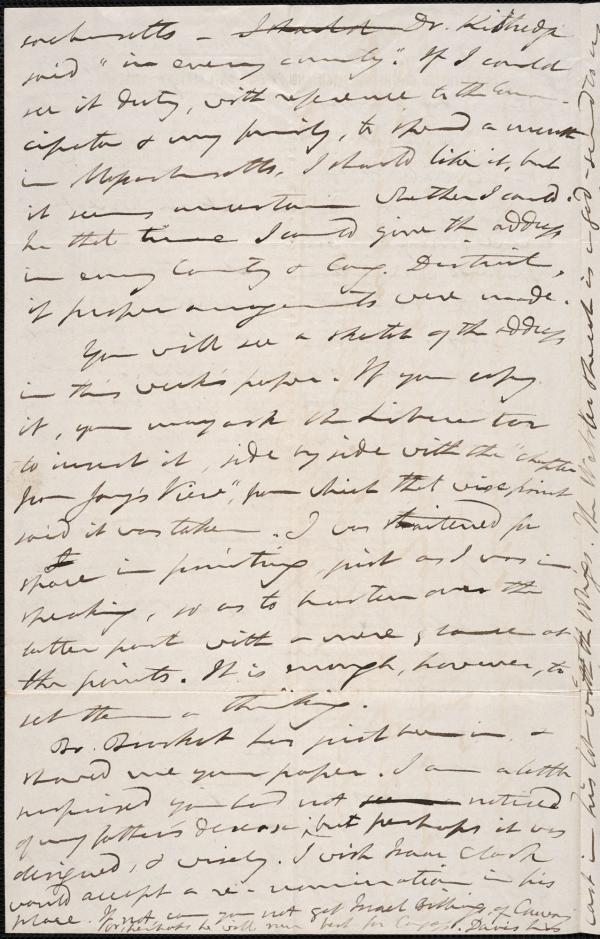 sachusetts – Dr. Kittredge
said "in every county." If I could
see it duty, with reference to the Eman-
cipator & my family, to spend a month
in Massachusetts, I should like it, but
it seems uncertain whether I could.
In that time I could give the address
in every County & Cong. District,
if proper arrangements were made.
You will see a sketch of the address
in this week's paper. If you copy
it, you may ask the Liberator
to insert it, side by side with the "chapter
from Jay's View", from which that wise print
said it was taken. I was straitened for
space in printing, just as I was in
speaking, so as to hasten over the
latter part with a mere glance at
the points. It is enough, however, to
set them a thinking.
Br. has just been in &
showed me your paper. I am a little
surprised you had not noticed
of my father's decease; but perhaps it was
designed, & wisely. I wish Isaac Clark
would accept a re-nomination in his
place. If not, can you not get Israel Billings, of Conway
or, perhaps he will run best for Congress. Davis has
cast in his lot with the Whigs. The Webster is a god-send to us